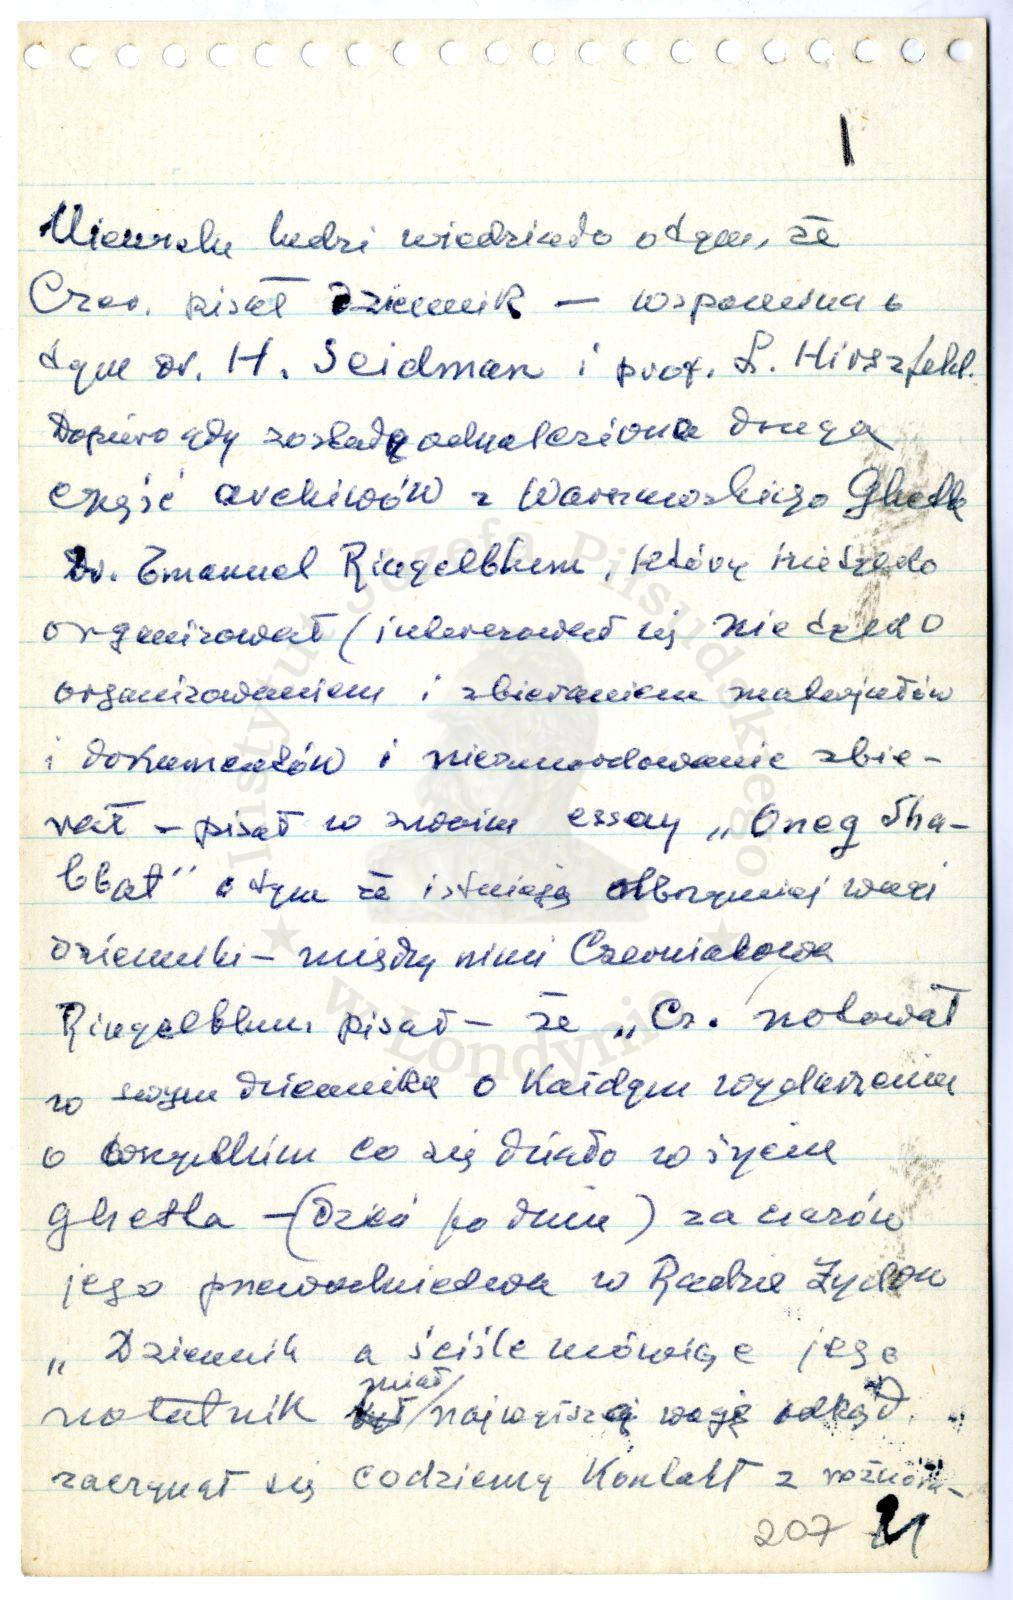 1
Niewielu ludzi wiedziało o tym, że
Czer. pisał Dziennik — wspomina o
tym dr. H. Seidman i prof. L. Hirszfeld.
Dopiero gdy została odnaleziona druga
część archiwów z Warszawskiego Ghetta
Dr. Emanuel Ringelblum, który nie tylko
organizował (interesował się nie tylko
organizowaniem i zbieraniem materjałów
i dokumentów i niezmordowanie zbie-
rał — pisał w swoim essay „Oneg Sha-
bbat" o tym że istnieją olbrzymiej wagi
dzienniki — między nimi Czerniakowa
Ringelblum pisał — że „Cz. notował
w swym dzienniku o każdym wydarzeniu
o wszystkim co się działo w życiu
Ghetta — (dzień po dniu) za czasów
jego przewodnictwa w Radzie Żydow
„Dziennik a ściśle mówiąc jego
notatnik miał najwyższą wagę odkąd
zaczynał się codzienny kontakt z różnem-
207 21
Instytut Józefa Piłsudskiego
w Londynie